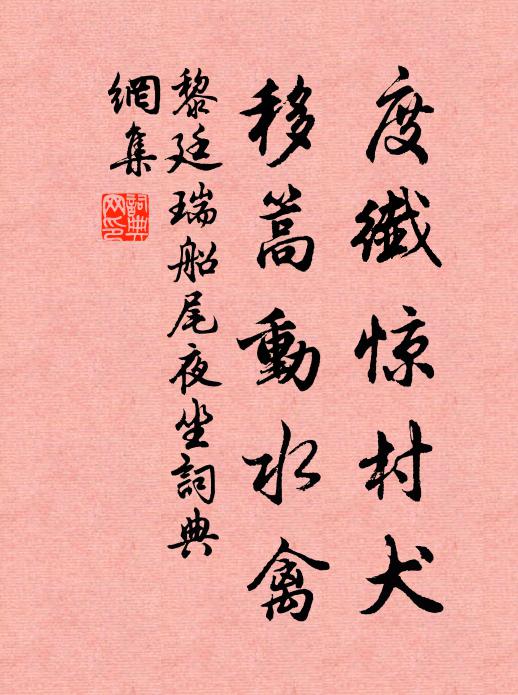 度纖惊村犬
移蒿動水禽
黎廷瑞船尾夜坐詞典
網集
詞典
网印